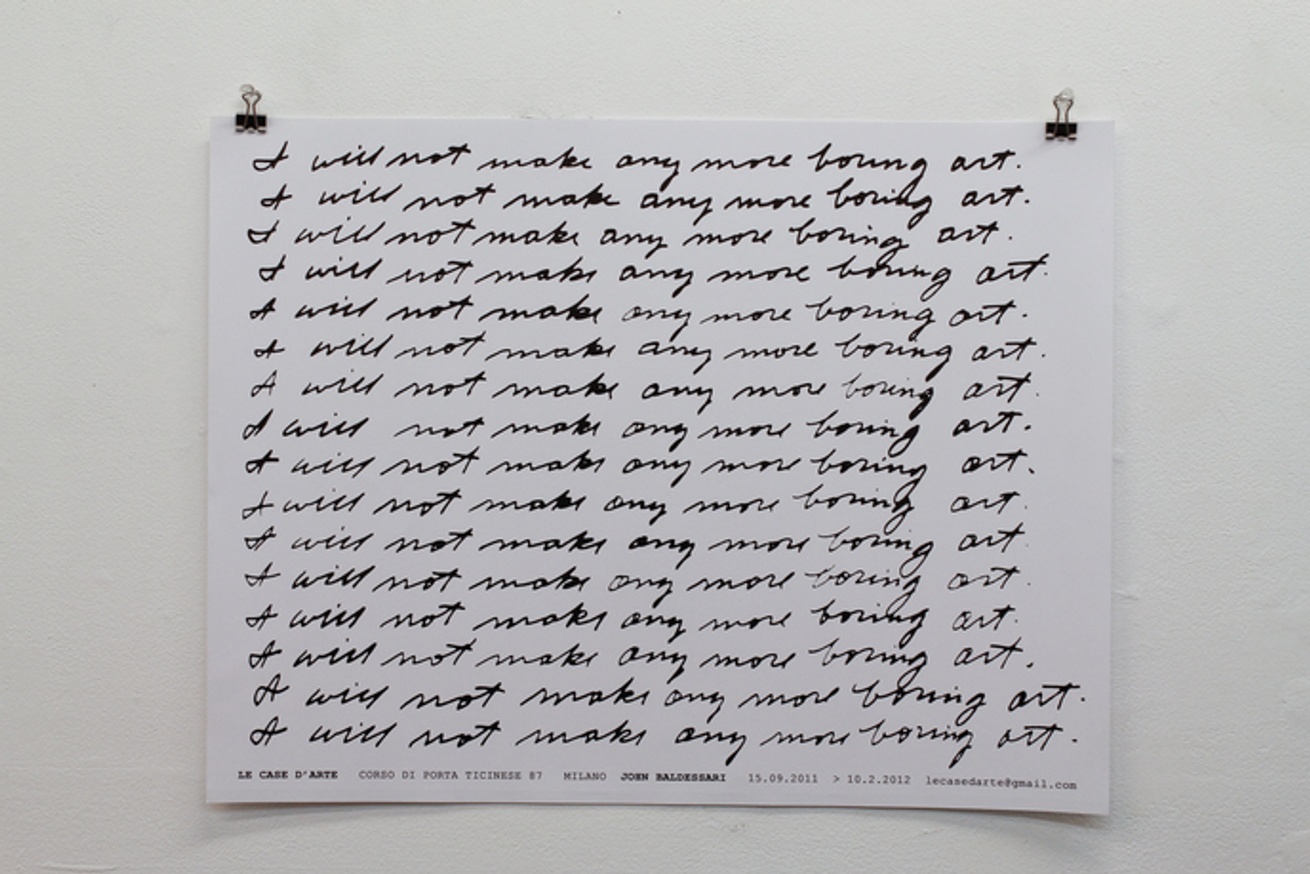 I will not make any more boring art.
I will not make any more boring art.
I will not make any more boring art.
I will not make any more boring art.
I will not make any more boring art.
I will not make any more boring art.
I will not make any more boring art.
I will not make any more boring art.
I will not make any more boring art.
I will not make any more boring art.
I will not make any more boring art.
I will not make any more boring art.
I will not make any more boring art.
I will not make any more boring art.
I will not make any more boring art.
I will not make any more boring art.
LE CASE D'ARTE CORSO DI PORTA TICINESE 87 MILANO JOHN BALDESSARI 15.09.2011 > 10.2.2012 lecasedarte@gmail.com